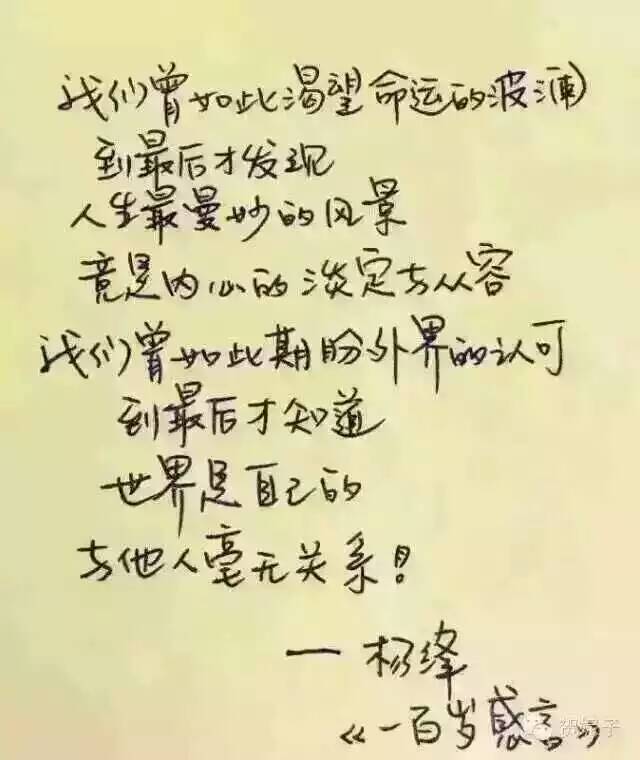 我们曾如此渴望命运的波澜
到最后才发现
人生最曼妙的风景
竟是内心的淡定与从容
我们曾如此期盼外界的认可
到最后才知道
世界是自己的
与他人毫无关系!
— 杨绛
《一百岁感言》